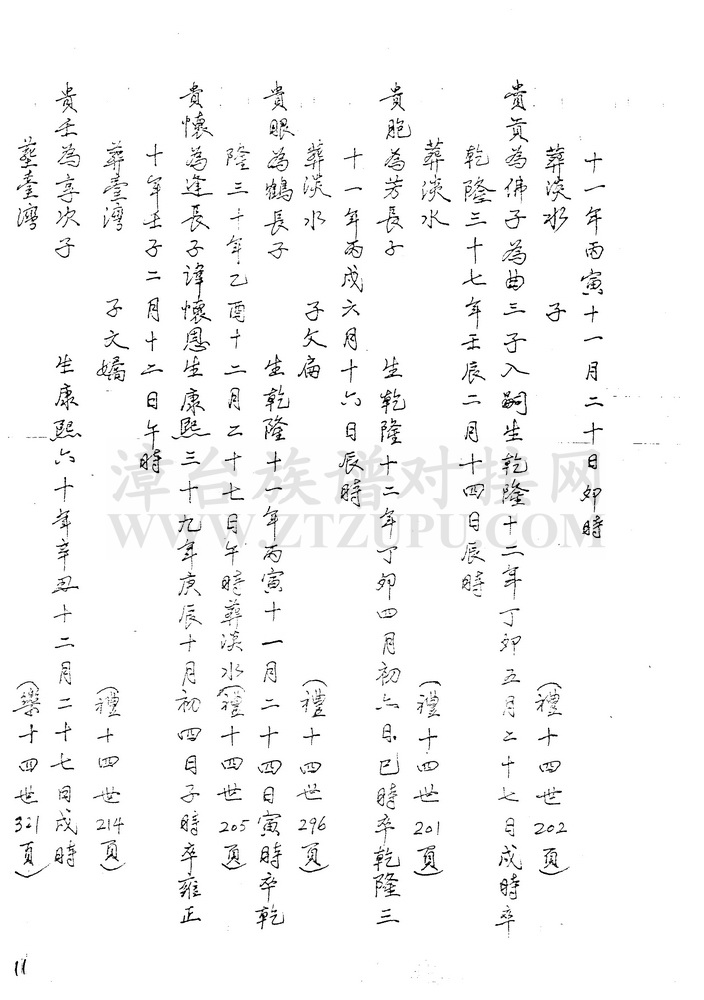 十一年丙寅十一月二十日卯時
葬淡水 子 (禮十四世202頁)
貴貢為佛子為曲三子入嗣生乾隆十二年丁卯五月二十七日戌時卒
乾隆三十七年壬辰二月十四日辰時
葬淡水 (禮十四世201頁)
貴胞為芳長子 生乾隆十二年丁卯四月初六日巳時卒乾隆三
十一年丙戌六月十六日辰時
葬淡水 子文扁 (禮十四世296頁)
貴眼為鶴長子 生乾隆十一年丙寅十一月二十四日寅時卒乾
隆三十年乙酉十二月二十七日午時葬淡水(禮十四世205頁)
貴懷為逢長子諱懷恩生康熙三十九年庚辰十月初四日子時卒雍正
十年壬子二月十二日午時
葬臺灣 子文嬌 (禮十四世214頁)
貴壬為享次子 生康熙六十年辛丑十二月二十七日戌時
葬臺灣 (樂十四世321頁)
11
漳台族谱对接网
WWW.ZTZUPU.COM